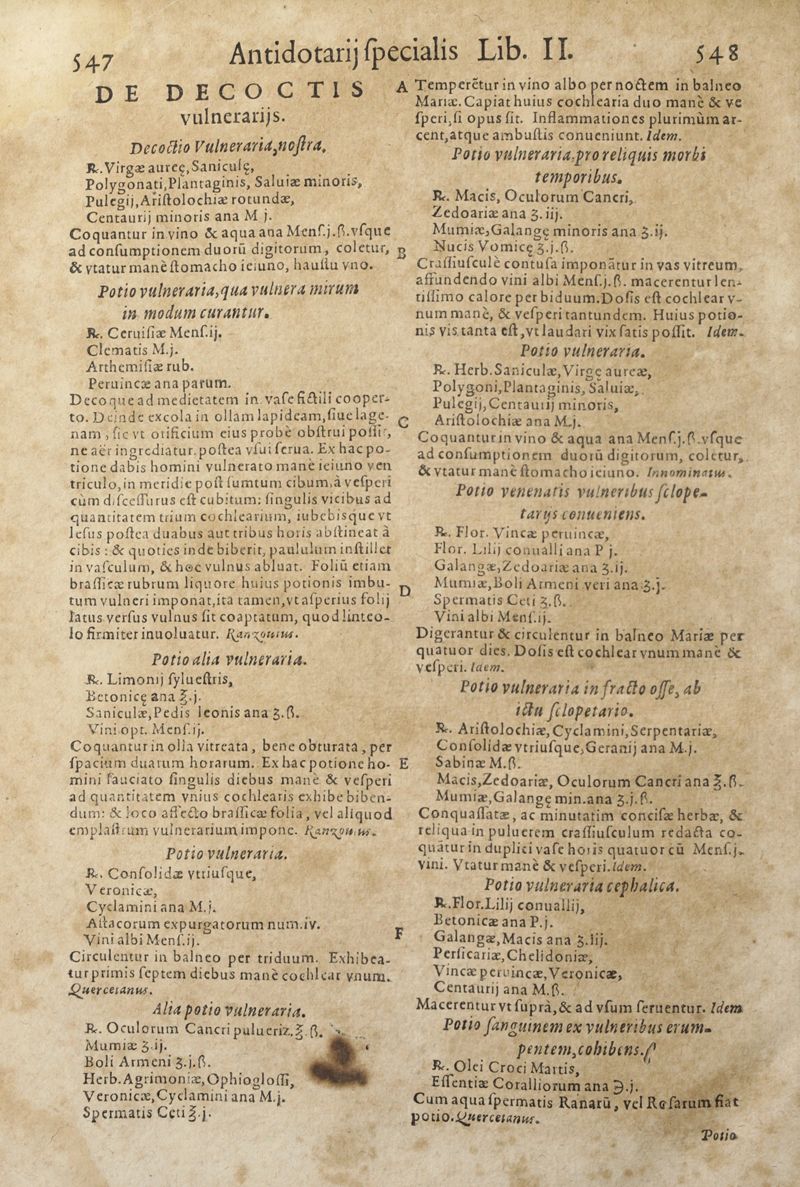 547
Antidotarij ſpecialis Lib. II.
548
DE DECOCTIS
vulnerarijs.
Decoctio Vulneraria, noſtra.
℞. Virgæ aureę, Saniculę,
Polygonati, Plantaginis, Saluiæ minoris,
Pulegij, Ariſtolochiæ rotundæ,
Centaurij minoris ana M j.
Coquantur in vino & aqua ana Menſ.j.ß. vſque
ad conſumptionem duorũ digitorum, coletur,
& vtatur manè ſtomacho ieiuno, hauſtu vno.
Potio vulneraria, qua vulnera mirum
in modum curantur.
℞. Ceruiſiæ Menſ.ij.
Clematis M.j.
Arthemiſiæ rub.
Peruincæ ana parum.
Decoque ad medietatem in vaſe fictili cooper-
to. Deinde excola in ollam lapideam, ſiue lage-
nam, ſic vt orificium eius probè obſtrui poſſit,
ne aër ingrediatur. poſtea vſui ſerua. Ex hac po-
tione dabis homini vulnerato manè ieiuno ven
triculo, in meridie poſt ſumtum cibum, à veſperi
cùm diſceſſurus eſt cubitum: ſingulis vicibus ad
quantitatem trium cochlearium, iubebisque vt
leſus poſtea duabus aut tribus horis abſtineat à
cibis: & quoties inde biberit, paululum inſtillet
in vaſculum, & hoc vulnus abluat. Foliũ etiam
braſſicæ rubrum liquore huius potionis imbu-
tum vulneri imponat, ita tamen, vt aſperius folij
latus verſus vulnus ſit coaptatum, quod linteo-
lo firmiter inuoluatur.
Potio alia vulneraria.
℞. Limonij ſylueſtris,
Betonicę ana ℥.j.
Saniculæ, Pedis leonis ana ʒ.ß.
Vini opt. Menſ.ij.
Coquantur in olla vitreata, bene obturata, per
ſpacium duarum horarum. Ex hac potione ho-
mini ſauciato ſingulis diebus manè & veſperi
ad quantitatem vnius cochlearis exhibe biben-
dum: & loco affecto braſſicæ folia, vel aliquod
emplaſtrum vulnerarium impone.
Potio vulneraria.
℞. Conſolidæ vtriuſque,
Veronicæ,
Cyclamini ana M.j.
Aſtacorum expurgatorum num.iv.
Vini albi Menſ.ij.
Circulentur in balneo per triduum. Exhibea-
tur primis ſeptem diebus manè cochlear vnum.
Quercetanus.
Alia potio vulneraria.
℞. Oculorum Cancri pulueriz.℥.ß.
Mumiæ ʒ.ij.
Boli Armeni ʒ.j.ß.
Herb. Agrimoniæ, Ophiogloſſi,
Veronicæ, Cyclamini ana M.j.
Spermatis Ceti ℥.j.
A
B
C
D
E
F
Temperẽtur in vino albo per noctem in balneo
Mariæ. Capiat huius cochlearia duo manè & ve
ſperi, ſi opus ſit. Inflammationes plurimùm ar-
cent, atque ambuſtis conueniunt. Idem.
Potio vulneraria, pro reliquis morbi
temporibus.
℞. Macis, Oculorum Cancri,
Zedoariæ ana ʒ.iij.
Mumiæ, Galangę minoris ana ʒ.ij.
Nucis Vomicę ʒ.j.ß.
Craſſiuſculè contuſa imponãtur in vas vitreum,
affundendo vini albi Menſ.j.ß. macerentur len-
tiſſimo calore per biduum. Doſis eſt cochlear v-
num manè, & veſperi tantundem. Huius potio-
nis vis tanta eſt, vt laudari vix ſatis poſſit. Idem.
Potio vulneraria.
℞. Herb. Saniculæ, Virgę aureæ,
Polygoni, Plantaginis, Saluiæ,
Pulegij, Centaurij minoris,
Ariſtolochiæ ana M.j.
Coquantur in vino & aqua ana Menſ.j.ß. vſque
ad conſumptionem duorũ digitorum, coletur,
& vtatur manè ſtomacho ieiuno. Innominatus.
Potio venenatis vulneribus ſclope-
tarijs conueniens.
℞. Flor. Vincæ peruincæ,
Flor. Lilij conualli ana P j.
Galangæ, Zedoariæ ana ʒ.ij.
Mumiæ, Boli Armeni veri ana ʒ.j.
Spermatis Ceti ʒ.ß.
Vini albi Menſ.ij.
Digerantur & circulentur in balneo Mariæ per
quatuor dies. Doſis eſt cochlear vnum manè &
veſperi. Idem.
Potio vulneraria in fracto oſſe, ab
ictu ſclopetario.
℞. Ariſtolochiæ, Cyclamini, Serpentariæ,
Conſolidæ vtriuſque, Geranij ana M.j.
Sabinæ M.ß.
Macis, Zedoariæ, Oculorum Cancri ana ℥.ß.
Mumiæ, Galangę min. ana ʒ.j.ß.
Conquaſſatæ, ac minutatim conciſæ herbæ, &
reliqua in puluerem craſſiuſculum redacta co-
quãtur in duplici vaſe horis quatuor cũ Menſ.j.
vini. Vtatur manè & veſperi. Idem.
Potio vulneraria cephalica.
℞. Flor. Lilij conuallij,
Betonicæ ana P.j.
Galangæ, Macis ana ʒ.iij.
Perſicariæ, Chelidoniæ,
Vincæ peruincæ, Veronicæ,
Centaurij ana M.ß.
Macerentur vt ſuprà, & ad vſum ſeruentur. Idem
Potio ſanguinem ex vulneribus erum-
pentem, cohibens.
℞. Olei Croci Martis,
Eſſentiæ Coralliorum ana ℈.j.
Cum aqua ſpermatis Ranarũ, vel Roſarum fiat
potio. Quercetanus.
Potio